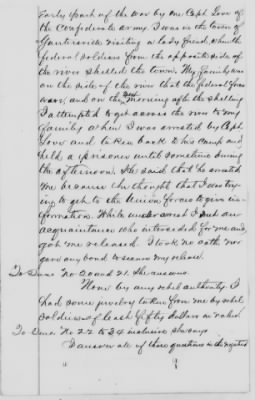 early part of the war by one Capt Lon of
the Confederate army. I was in the town of
Guntersville visiting a lady friend, when the
federal soldiers from the opposite side of
the river shelled the town. My family was
on the side of the river that the federal forces
were, and on the next morning after the shelling
I attempted to get across the river to my
family when I was arrested by Capt
Low and taken back to his camp and
held a prisoner until sometime during
the afternoon. He said that he arrested
me because he thought that I was try-
ing to get to the Union forces to give in-
formation. While under arrest I met an
acquaintance who interceded for me and
got me released. I took no oath nor
gave any bond to secure my release.
To Ques No 20 and 21. She answers
None by any rebel authority. I
had some jewelry taken from me by rebel
soldiers of least fifty dollars in value.
To Ques No 22 to 24 inclusive she says
I answer all of these questions in the negative
" "